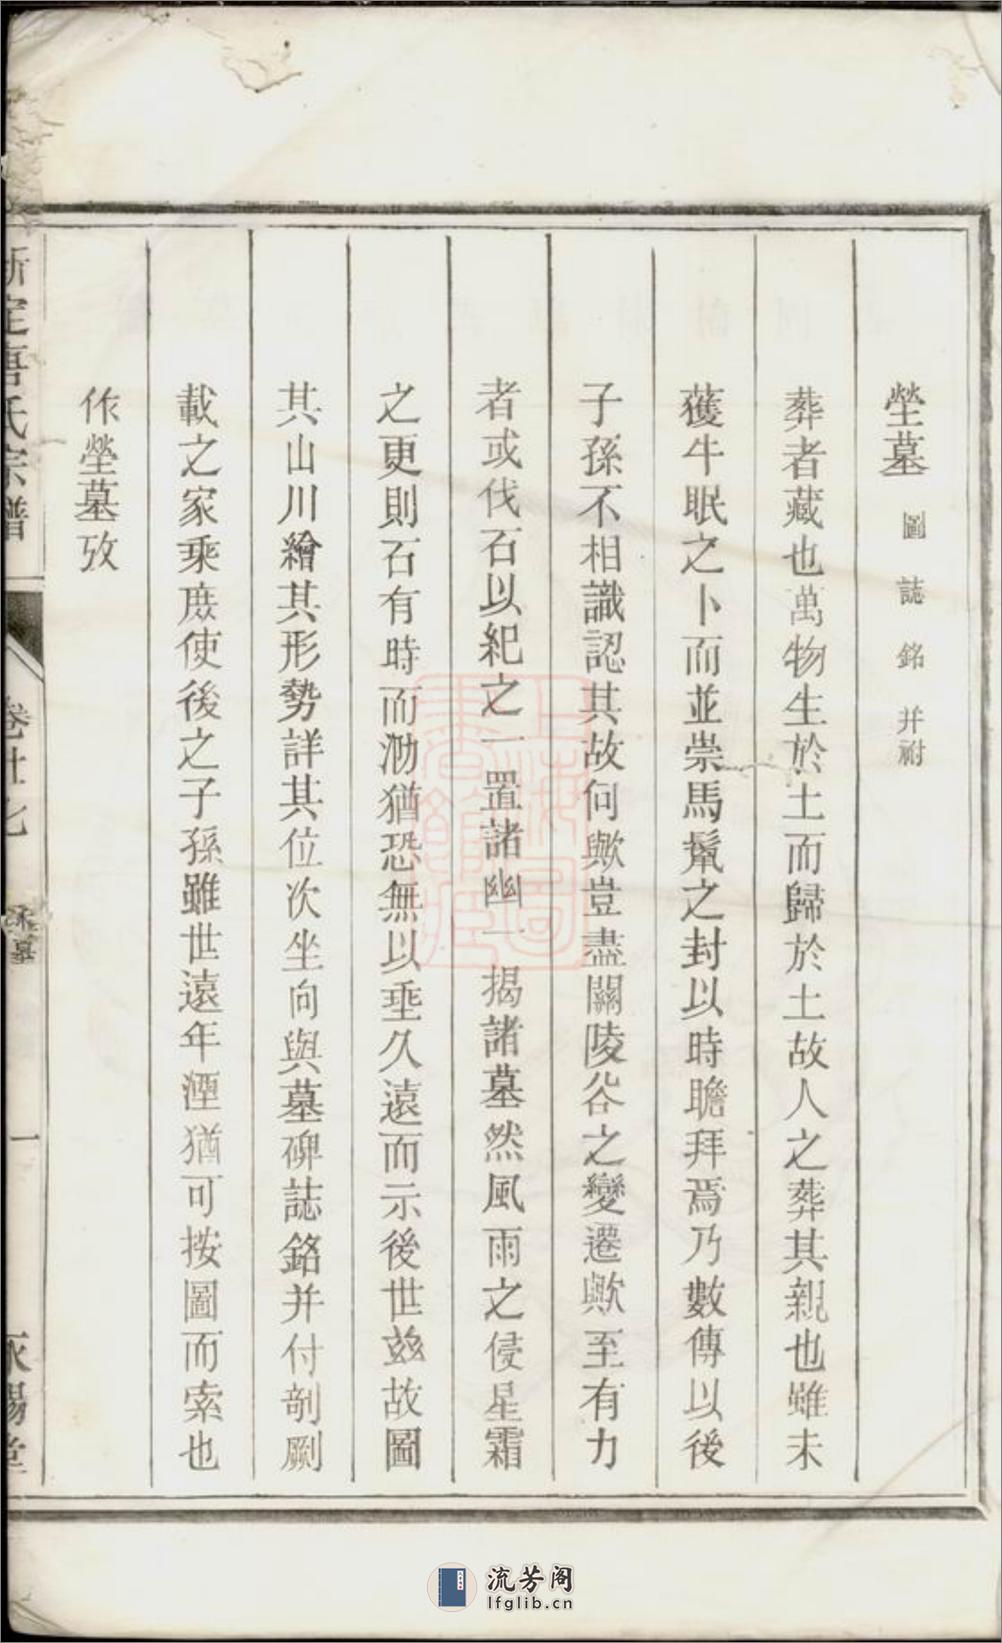 塋墓 圖誌銘并祔
葬者藏也萬物生於土而歸於土故人之葬其親也雖未
獲牛眠之卜而並崇馬鬣之封以時瞻拜焉乃數傳以後
子孫不相識認其故何歟豈盡關陵谷之變遷歟至有力
者或伐石以紀之一置諸幽一揭諸墓然風雨之侵星霜
之更則石有時而泐猶恐無以垂久遠而示後世玆故圖
其山川繪其形勢詳其位次坐向與墓碑誌銘并付剞劂
載之家乘庶使後之子孫雖世遠年湮猶可按圖而索也
作塋墓攷
新定唐氏宗譜
卷廿七
墓
一
上海圖書館藏
流芳阁
lfglib.cn